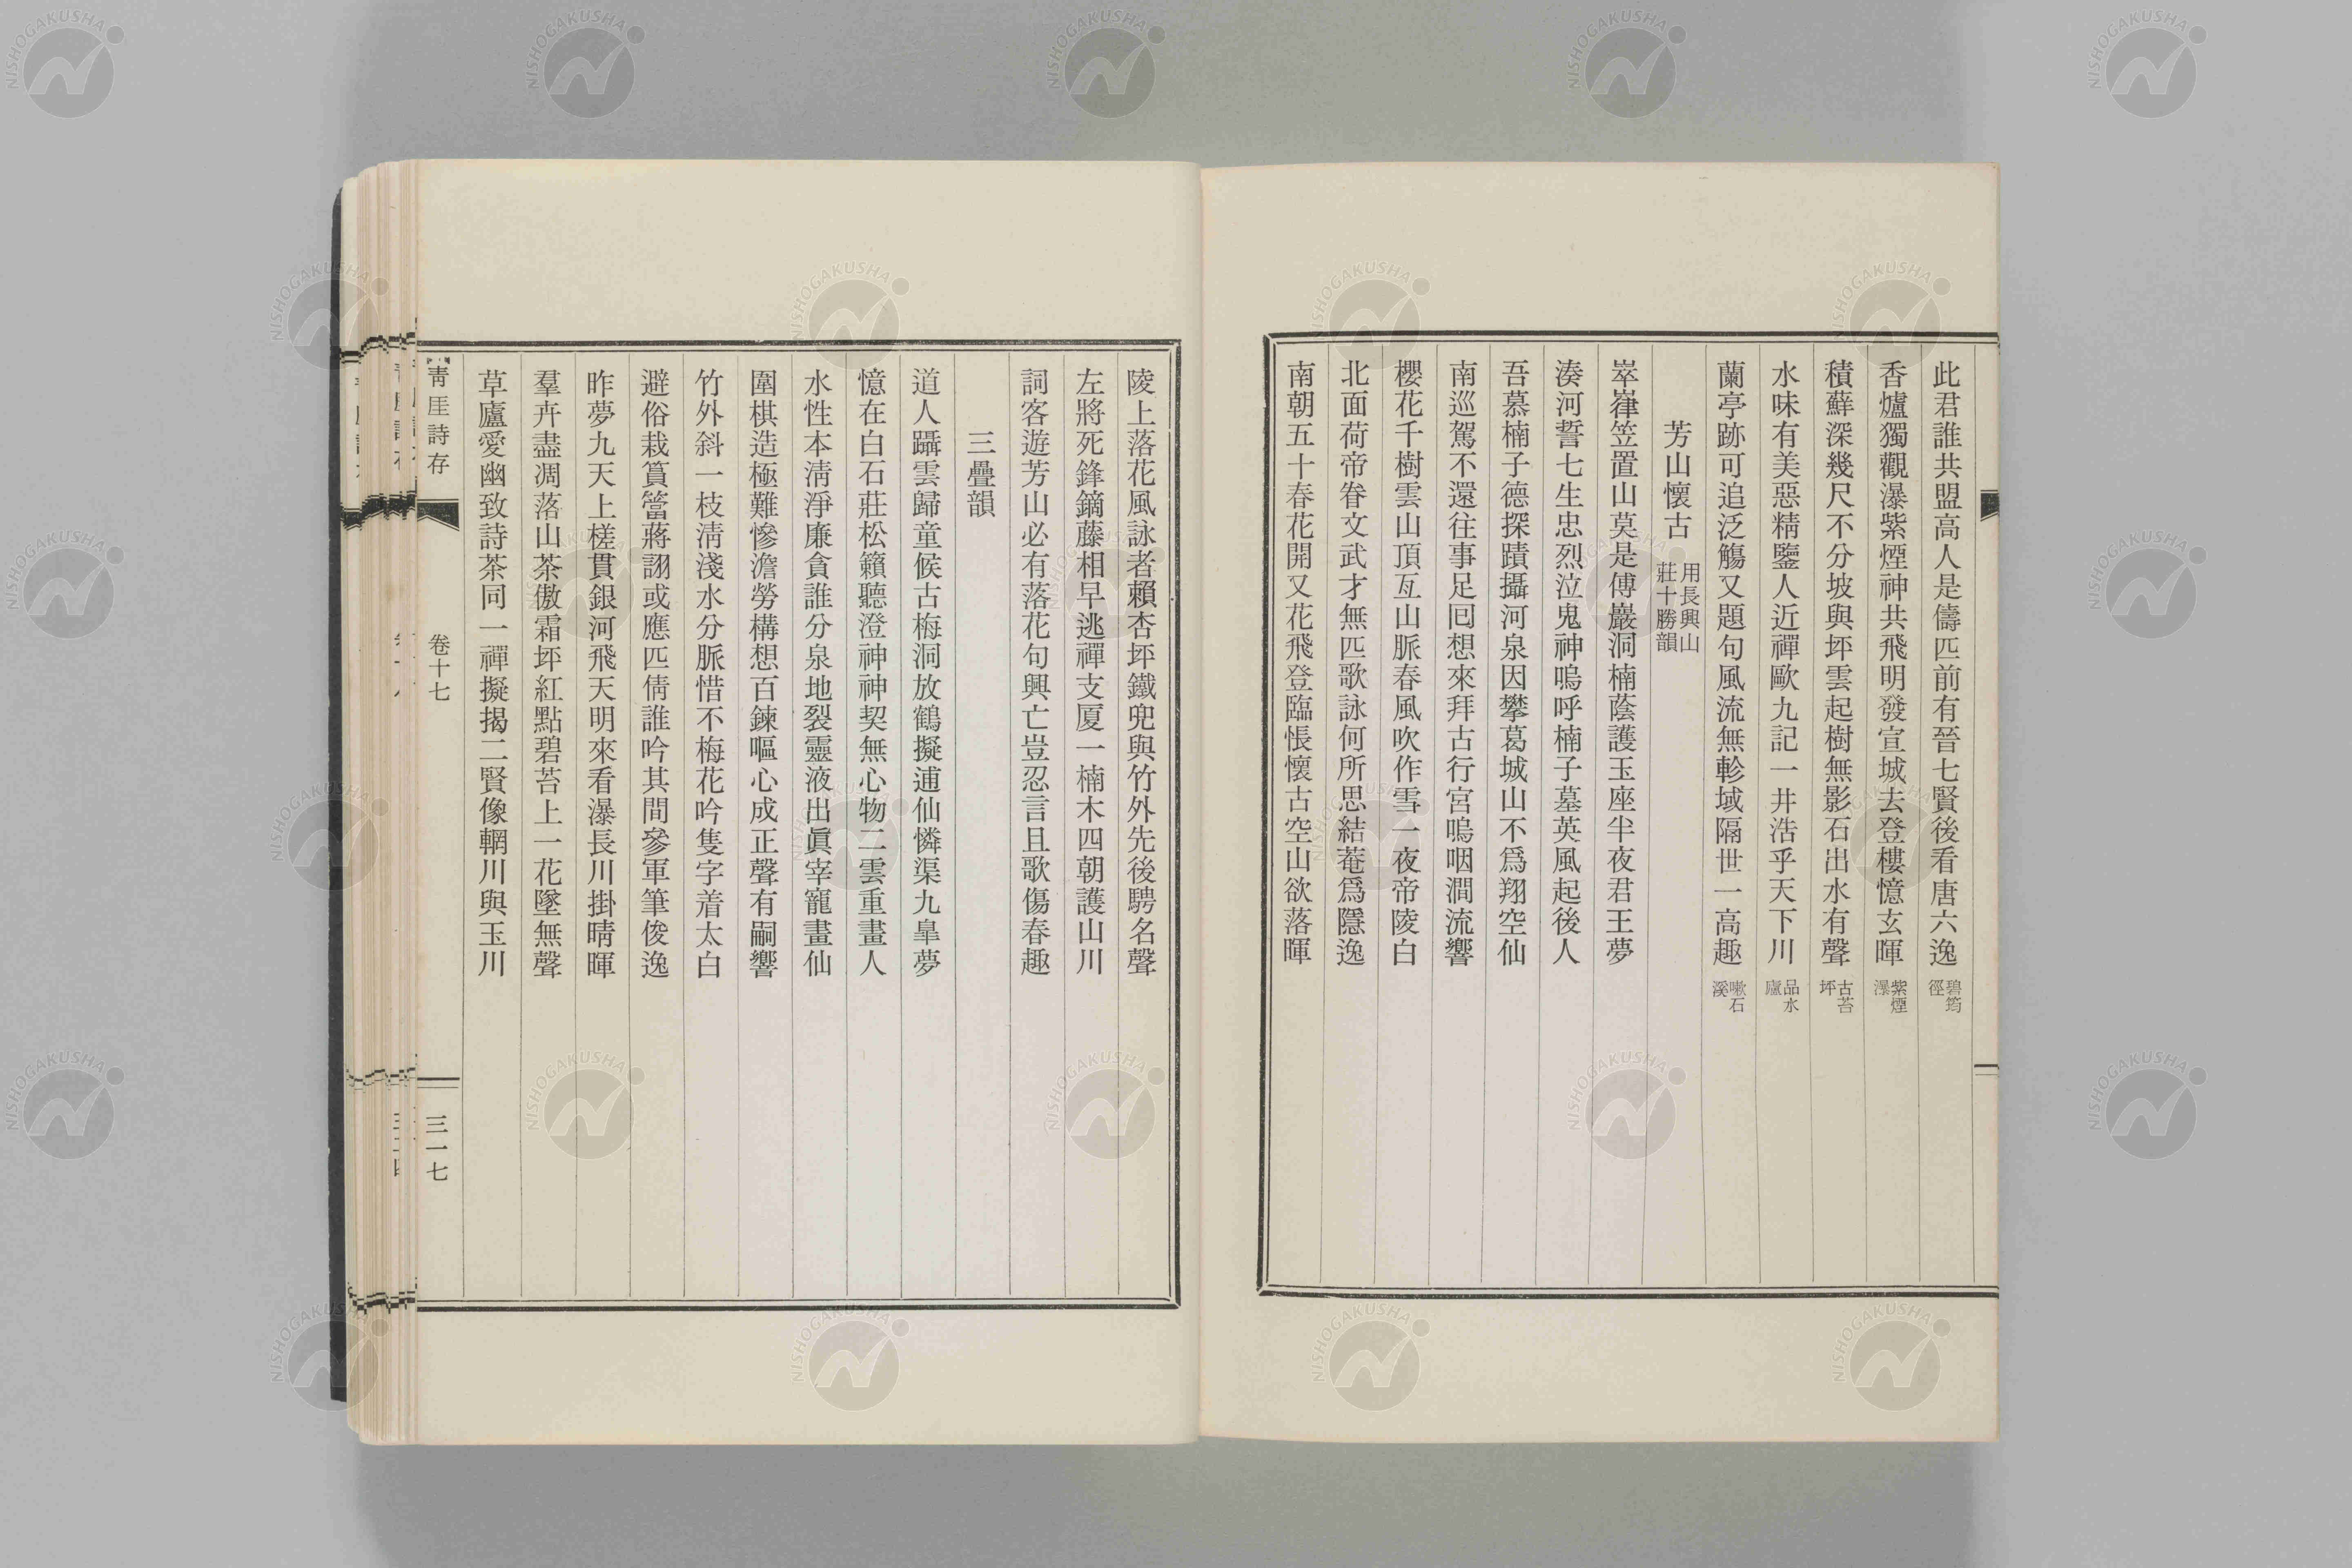 此君誰共盟高人是儔匹前有晉七賢後看唐六逸 碧筠徑
香爐獨觀瀑紫煙神共飛明發宣城去登樓憶玄暉 紫煙瀑
積蘚深幾尺不分坡與坪雲起樹無影石出水有聲 古苔坪
水味有美惡精鑒人近禪歐九記一井浩乎天下川 品水廬
蘭亭跡可追泛觴又題句風流無畛域隔世一高趣 嗽石溪
芳山懷古 用長興山莊十勝韻
崒嵂笠置山莫是傅巖洞楠蔭護玉座半夜君王夢
湊河誓七生忠烈泣鬼神嗚呼楠子墓英風起後人
吾慕楠子德探蹟攝河泉因攀葛城山不爲翔空仙
南巡駕不還往事足囘想來拜古行宮嗚咽澗流響
櫻花千樹雲山頂亙山脈春風吹作雪一夜帝陵白
北面荷帝眷文武才無匹歌詠何所思結菴爲隱逸
南朝五十春花開又花飛登臨悵懷古空山欲落暉
陵上落花風詠者賴杏坪鐵兜與竹外先後騁名聲
左將死鋒鏑藤相早逃禪支厦一楠木四朝護山川
詞客遊芳山必有落花句興亡豈忍言且歌傷春趣
三疊韻
道人躡雲歸童候古梅洞放鶴擬逋仙憐渠九皐夢
憶在白石莊松籟聽澄神神契無心物二雲重畫人
水性本淸淨廉貪誰分泉地裂靈液出眞宰寵畫仙
圍棋造極難慘澹勞構想百鍊嘔心成正聲有嗣響
竹外斜一枝淸淺水分脈惜不梅花吟隻字着太白
避俗栽篔簹蔣詡或應匹倩誰吟其間參軍筆俊逸
昨夢九天上槎貫銀河飛天明來看瀑長川掛晴暉
羣卉盡凋落山茶傲霜坏紅點碧苔上一花墜無聲
草廬愛幽致詩茶同一禪擬揭二賢像輞川與玉川
靑厓詩存
卷十七
三一七
NISHOGAKUSHA